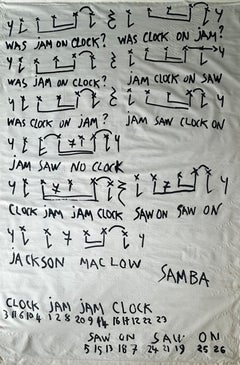 WAS JAM ON CLOCK? WAS CLOCK ON JAM?
WAS JAM ON CLOCK? JAM CLOCK ON SAW
WAS CLOCK ON JAM? JAM SAW CLOCK ON
JAM SAW NO CLOCK
CLOCK JAM JAM CLOCK SAW ON SAW ON
JACKSON MAC LOW
SAMBA
CLOCK JAM JAM CLOCK
SAW ON SAW ON
5 15 13 18 7 24 21 19 25 26